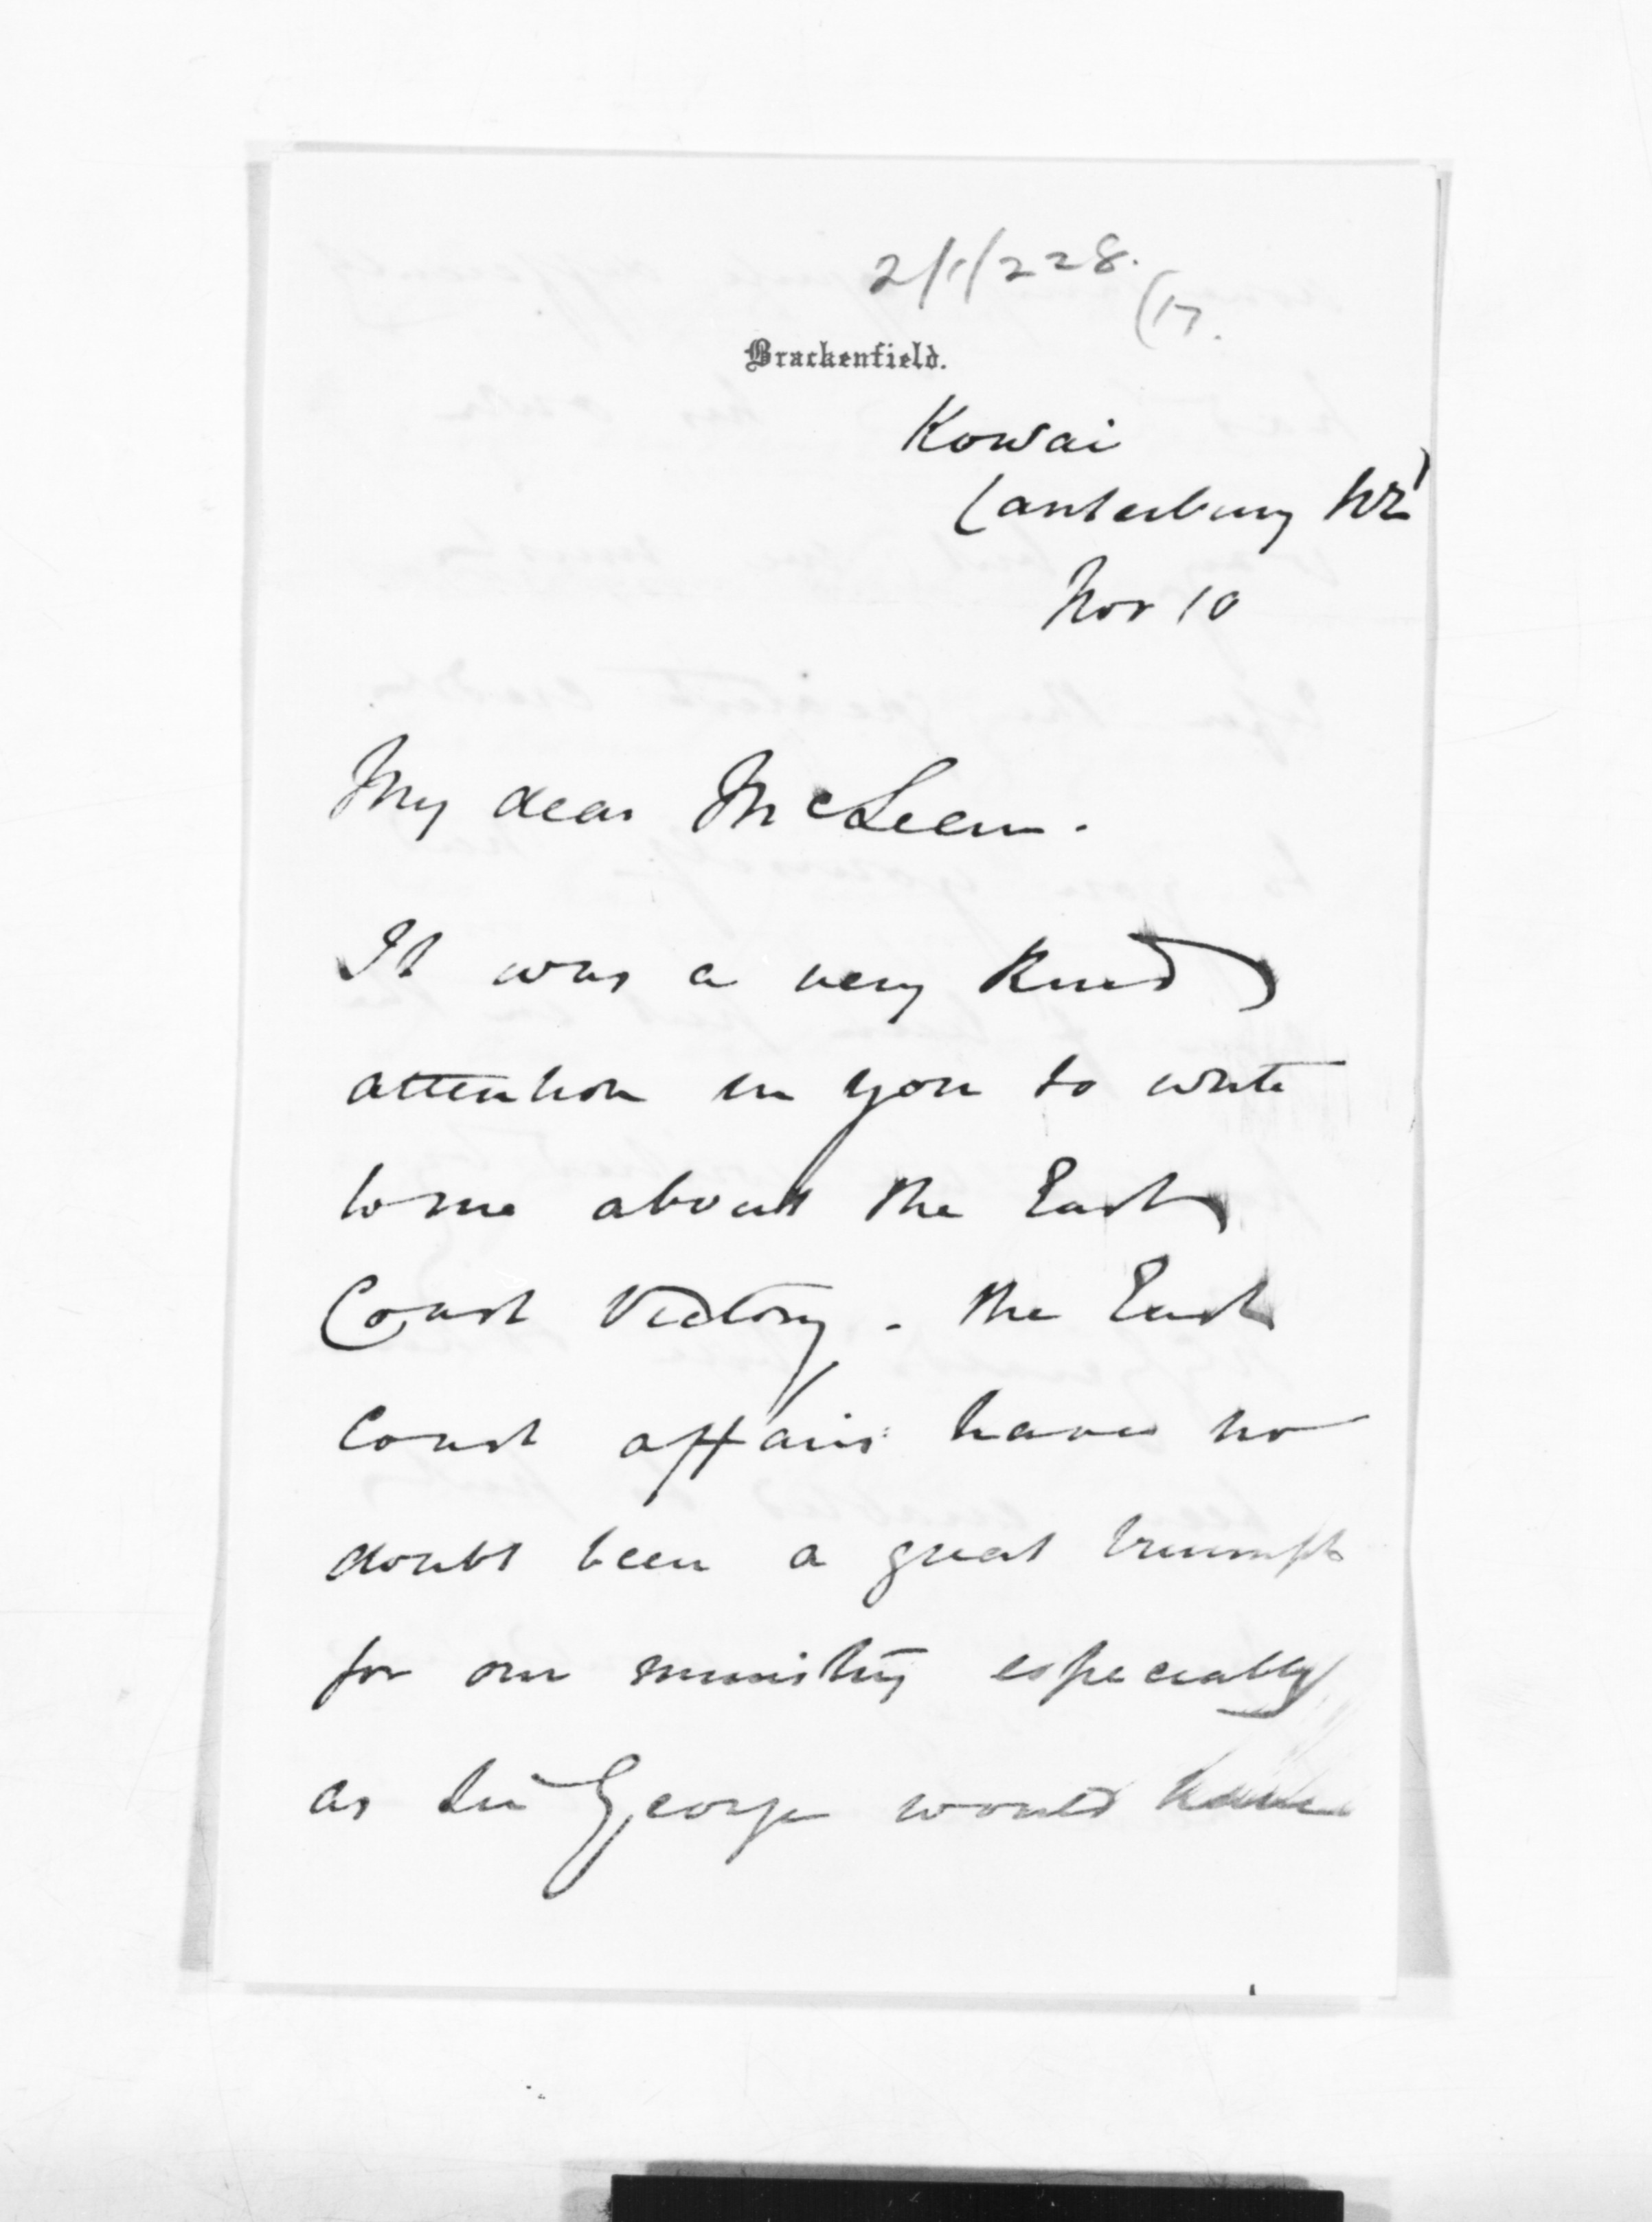 2/1/228.
(17.
Brackenfield.
Kowai
Canterbury NZ
Nov 10
My dear McLean.
It was a very kind
attention in you to write
to me about the East
Coast Victory. The East
Coast affairs have no
doubt been a great triumph
for our ministry especially
as Sir George would have